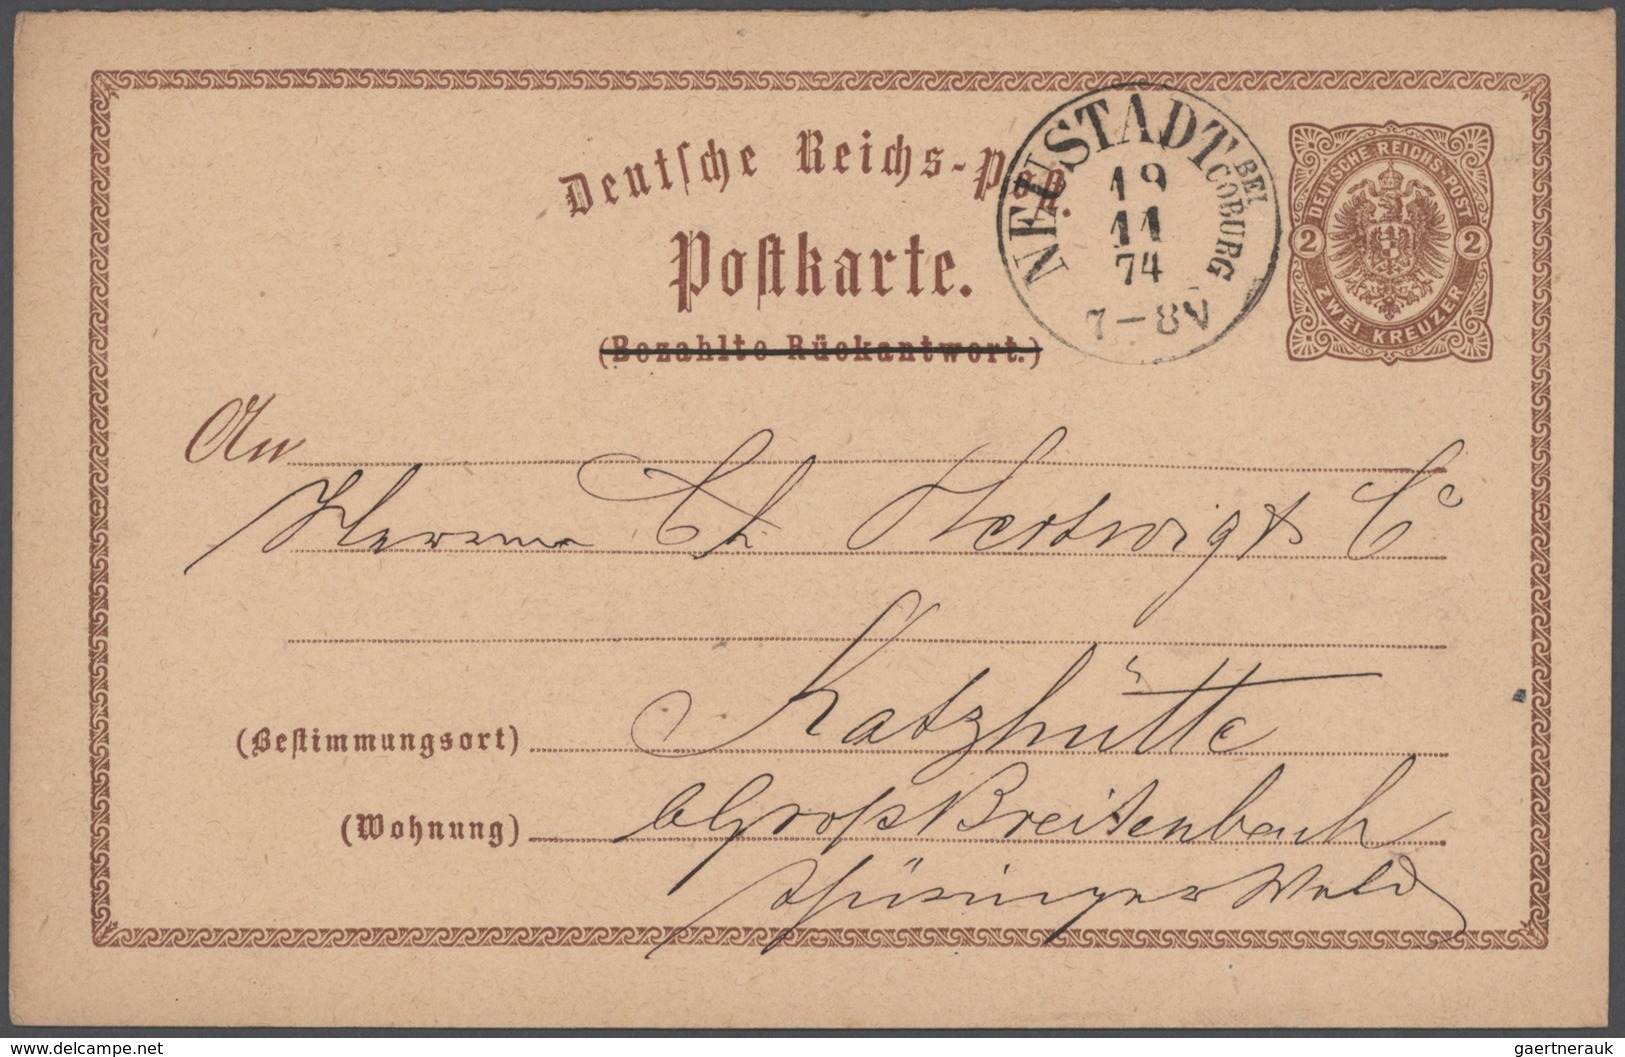 Deutsche Reichs-Post.
NEUSTADT BEI COBURG
19
11
74
7-8V
DEUTSCHE REICHS-POST
2 2
ZWEI KREUZER
Postkarte.
(Bezahlte Rückantwort.)
An
Herren Ch Hertwig & Cº
(Bestimmungsort) Katzhütte
(Wohnung) b Groß Breitenbach
Thüringer Wald
www.delcampe.net
gaertnerauk